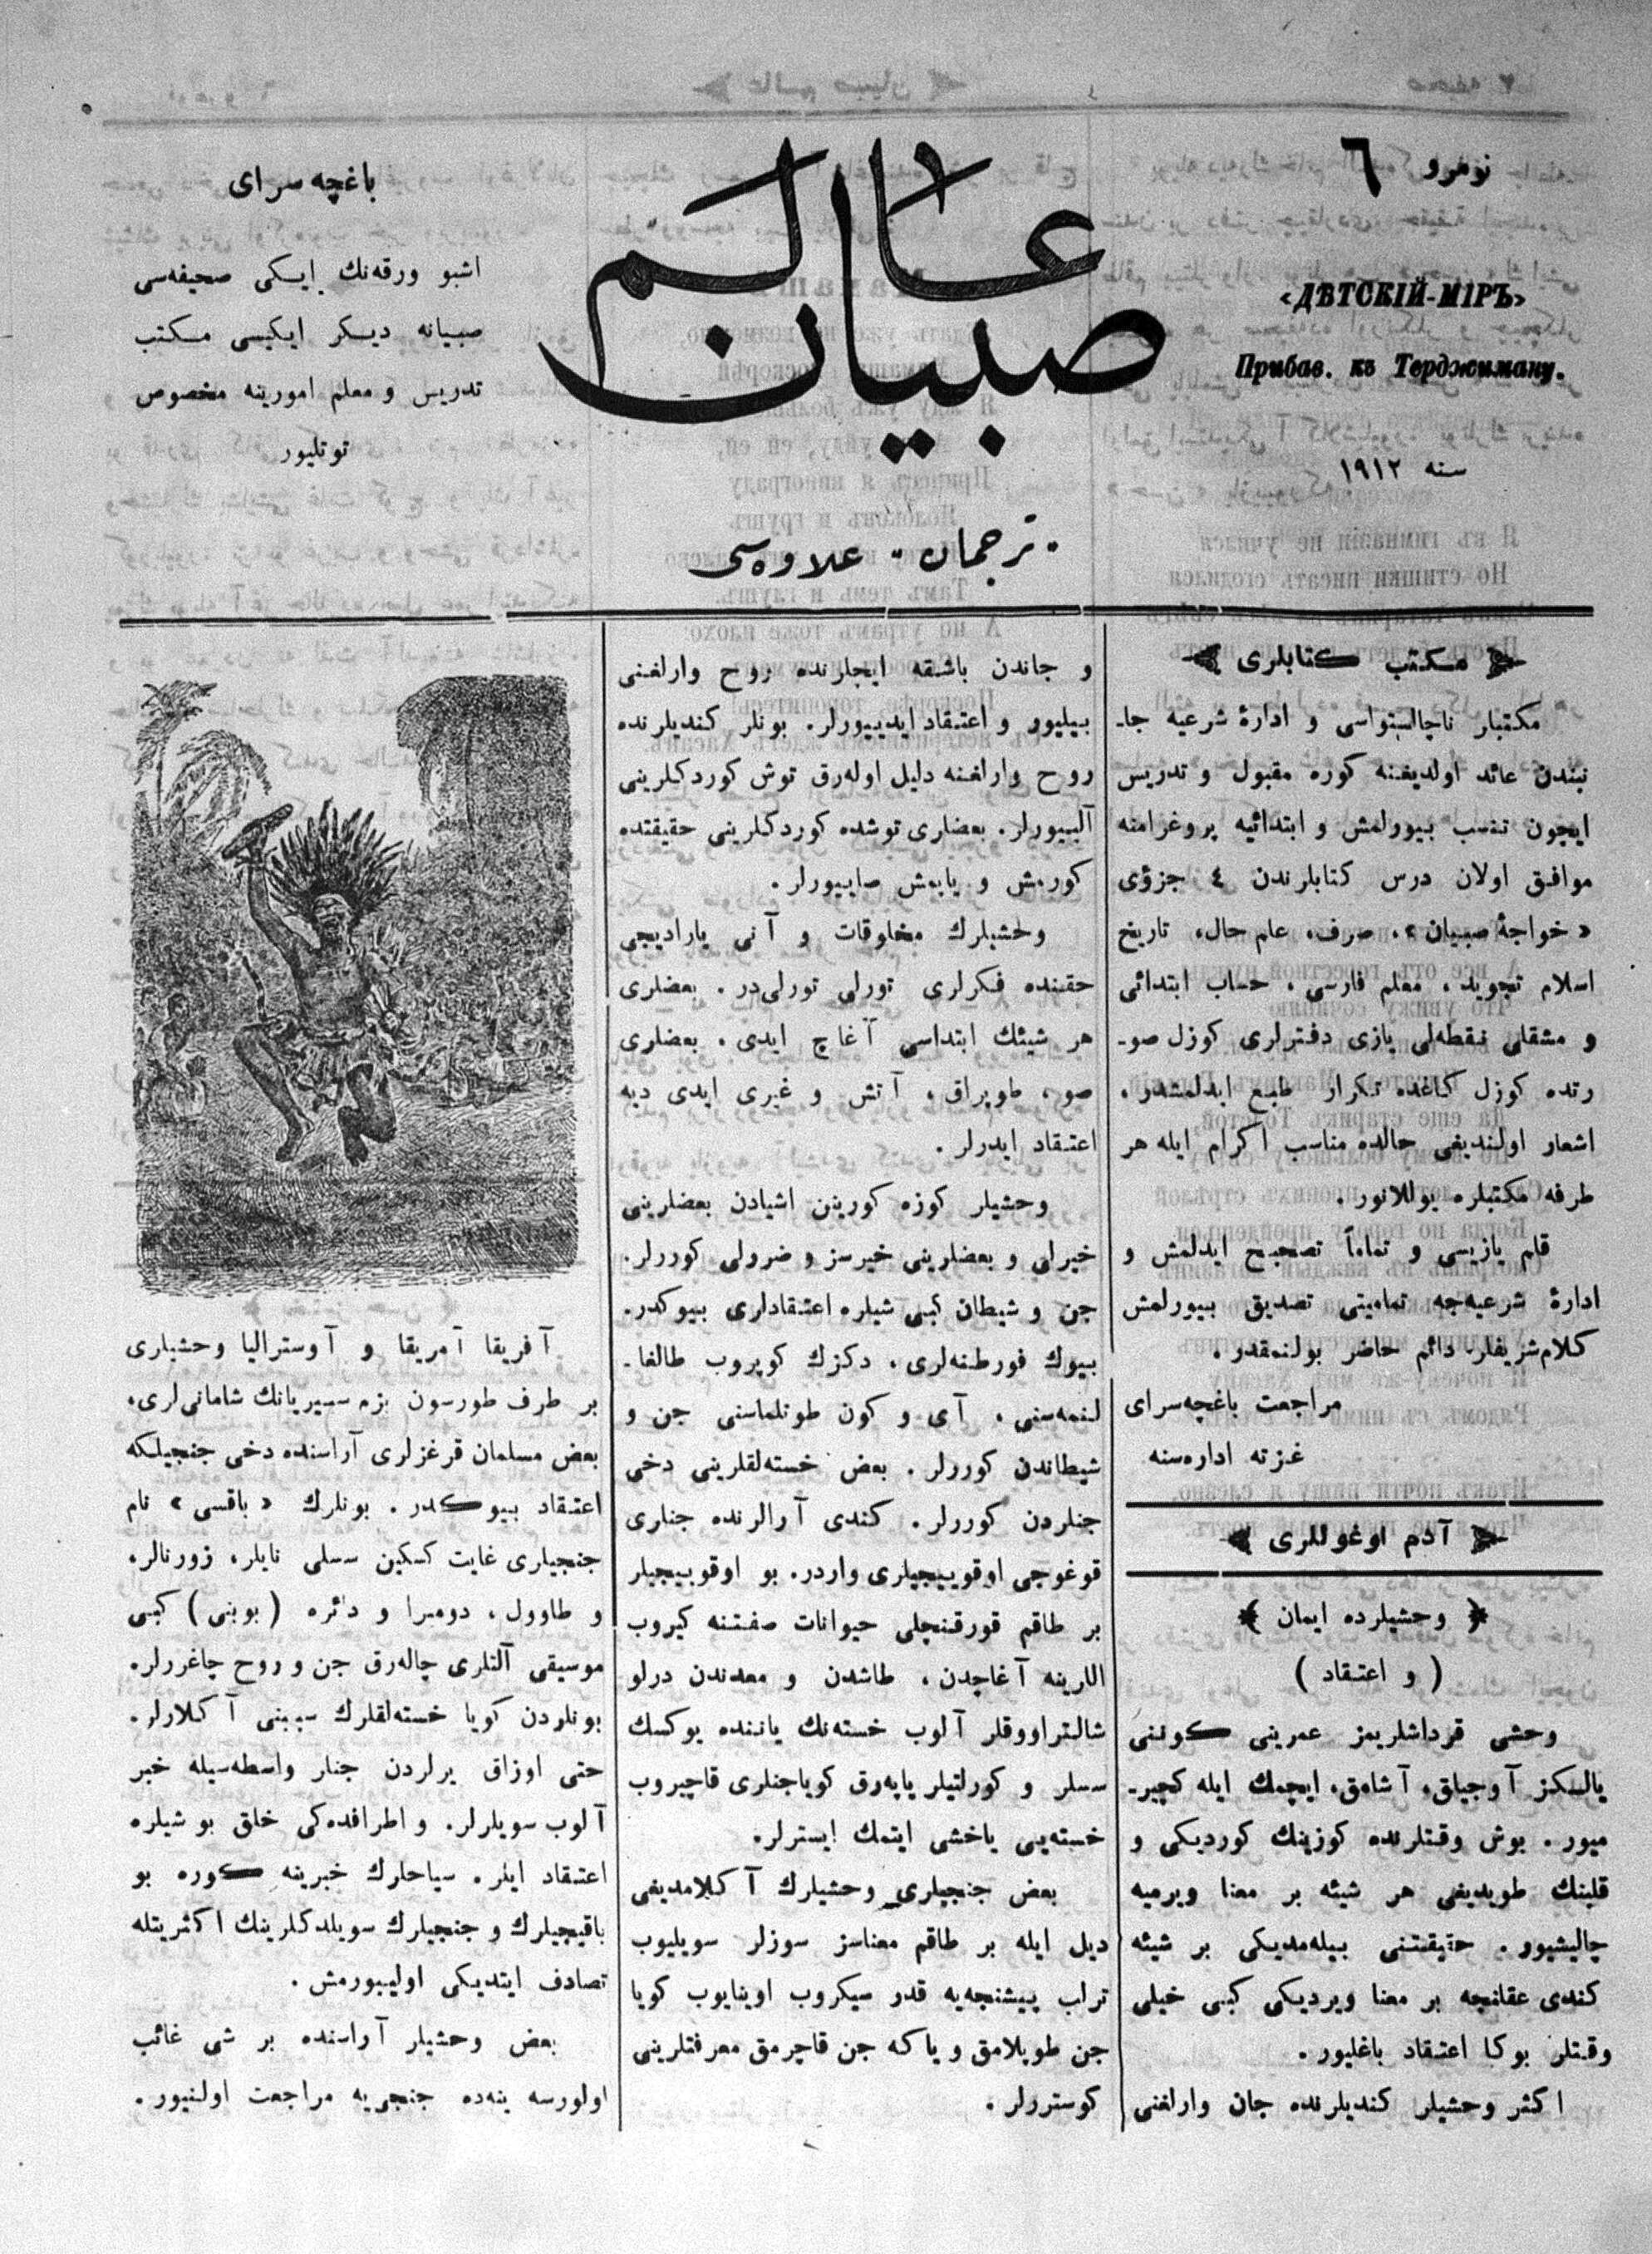 نومرو ٦
«ДѢТСКІЙ-МІРЪ»
Прибав. къ Терджиману.
سنه ١٩١٢
عالم
صبيان
ترجمان علاوه‌سی
باغچه سرای
اشبو ورقه‌نك ايكی صحيفه‌سی
صبيانه ديكر ايكيسی مكتب
تدريس و معلم امورينه مخصوص
توتليور
مكتب كتابلری
مكتبلر ناچالستواسی و ادارهٔ شرعيه جا-
نبندن عائد اولديغنه كوره مقبول و تدريس
ايچون تنسب بيورلمش و ابتدائيه پروغرامنه
موافق اولان درس كتابلرندن ٤ جزؤی
«خواجهٔ صبيان»، صرف، علم حال، تاريخ
اسلام تجويد، معلم فارسی، حساب ابتدائی
و مشقلی نقطه‌لی يازی دفترلری كوزل صو-
رتده كوزل كاغده تكرار طبع ايدلمشدر،
اشعار اولنديغی حالده مناسب اكرام ايله هر
طرفه مكتبلره يوللانور.
قلم يازيسی و تماماً تصحيح ايدلمش و
ادارهٔ شرعيه‌جه تماميتی تصديق بيورلمش
كلام شريفلر دائم حاضر بولنمقدر.
مراجعت باغچه‌سرای
غزته اداره‌سنه
آدم اوغوللری
وحشيلرده ايمان
(و اعتقاد)
وحشی قرداشلريمز عمرينی كونينی
يالكز آوجيلق، آشامق، ايچمك ايله كچير-
ميور. بوش وقتلرنده كوزينك كورديكی و
قلبنك طويديغی هر شيئه بر معنا ويرميه
چاليشيور. حقيقتنی بيله‌مديكی بر شيئه
كندی عقلنجه بر معنا ويرديكی كبی خيلی
وقتلر بوكا اعتقاد باغليور.
اكثر وحشيلر كنديلرنده جان وارلغنی
و جاندن باشقه ايچلرنده روح وارلغنی
بيليور و اعتقاد ايدييورلر. بونلر كنديلرنده
روح وارلغنه دليل اوله‌رق توش كوردكلرينی
آلييورلر. بعضلری توشده كوردكلرينی حقيقتده
كورمش و يابمش صاييورلر.
وحشيلرك مخلوقات و آنی ياراديجی
حقنده فكرلری تورلی تورلی‌در. بعضلری
هر شيئك ابتداسی آغاچ ايدی، بعضلری
صو، طوپراق، آتش و غيری ايدی ديه
اعتقاد ايدرلر.
وحشيلر كوزه كورينن اشيادن بعضلرينی
خيرلی و بعضلرينی خيرسز و ضررلی كوررلر.
جن و شيطان كبی شيلره اعتقادلری بيوكدر.
بيوك فورطنه‌لری، دكزك كوپروب طالغا-
لنمه‌سنی، آی و كون طوتلماسنی جن و
شيطاندن كوررلر. بعض خسته‌لقلرينی دخی
جنلردن كوررلر. كندی آرالرنده جنلری
قوغوجی اوقوييجيلری واردر. بو اوقوييجيلر
بر طاقم قورقنچلی حيوانات صفتنه كيروب
اللرينه آغاچدن، طاشدن و معدندن درلو
شالتراووقلر آلوب خسته‌نك ياننده يوكسك
سسلر و كورلتيلر ياپه‌رق كويا جنلری قاچيروب
خسته‌يی ياخشی ايتمك ايسترلر.
بعض جنجيلری وحشيلرك آكلامديغی
ديل ايله بر طاقم معناسز سوزلر سويليوب
تراب پيشنجه‌يه قدر سيكروب اوينايوب كويا
جن طوپلامق و ياكه جن قاچرمق معرفتلرينی
كوستررلر.
آفريقا آمريقا و آوستراليا وحشيلری
بر طرف طورسون بزم سيبريانك شامانی‌لری،
بعض مسلمان قرغزلری آراسنده دخی جنجيلكه
اعتقاد بيوكدر. بونلرك «باقسی» نام
جنجيلری غايت كسكين سسلی نايلر، زورنالر،
و طاوول، دومبرا و دائره (بوبنی) كبی
موسيقی آلتلری چاله‌رق جن و روح چاغررلر.
بونلردن كويا خسته‌لقلرك سببنی آكلارلر.
حتی اوزاق يرلردن جنلر واسطه‌سيله خبر
آلوب سويلرلر. و اطرافده‌كی خلق بو شيلره
اعتقاد ايلر. سياحلرك خبرينه كوره بو
باقيجيلرك و جنجيلرك سويلدكلرينك اكثريتله
تصادف ايتديكی اوليبورمش.
بعض وحشيلر آراسنده بر شی غائب
اولورسه ينه‌ده جنجی‌يه مراجعت اولنيور.